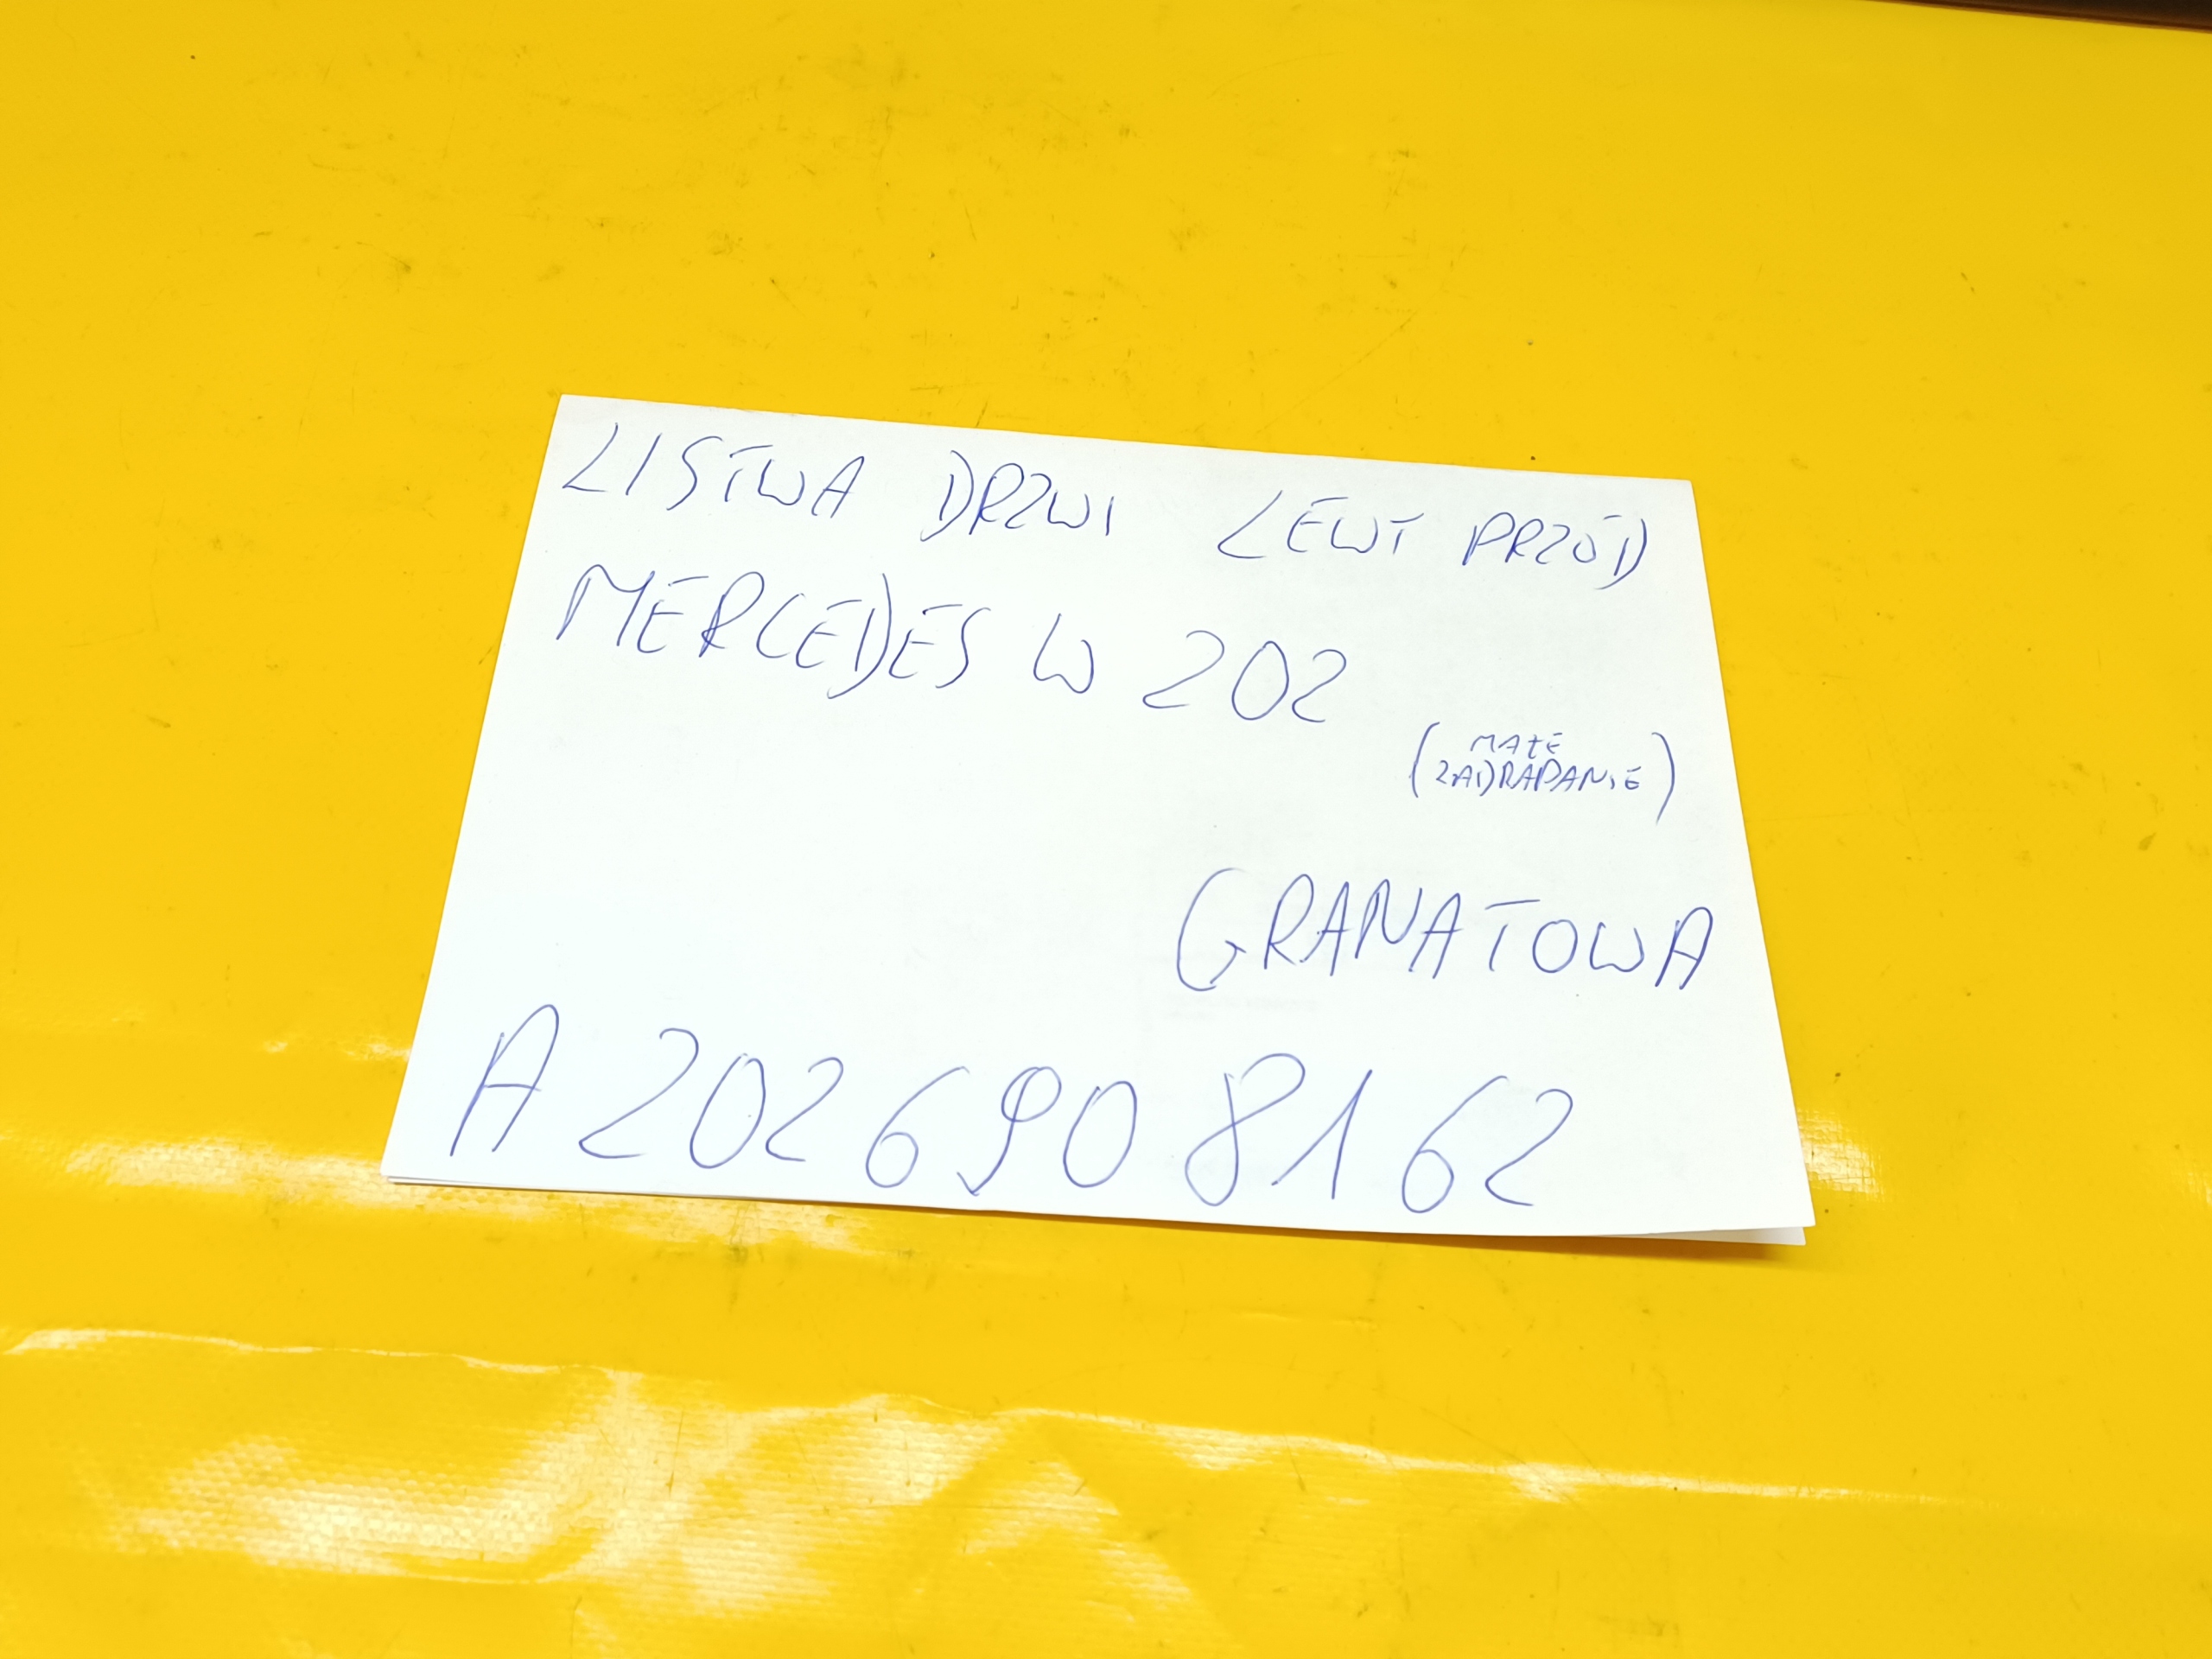 LISTWA DRZWI LEWY PRZÓD
MERCEDES W 202
(MAŁE
ZADRAPANIE)
GRANATOWA
A 202 690 8162